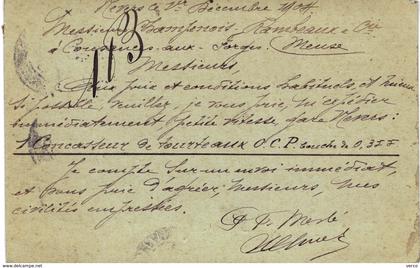 Nevers le 1er Décembre 1904
Messieurs Champenois-Rambeaux & Cie
à Cousances-aux-Forges, Meuse
113
Messieurs
Aux prix et conditions habituels, et mieux
si possible, veuillez, je vous prie, m'expédier
immédiatement petite vitesse gare Nevers :
1 Concasseur de tourteaux O.C.P. bouche de 0,37
Je compte sur un envoi immédiat,
et vous prie d'agréer, Messieurs, mes
civilités empressées.